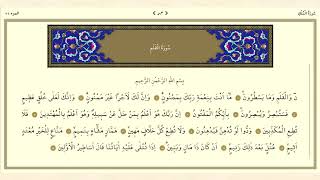 سُورَةُ القَلَمِ
بِسْمِ اللَّهِ الرَّحْمَٰنِ الرَّحِيمِ
نٓ وَالْقَلَمِ وَمَا يَسْطُرُونَ مَا أَنتَ بِنِعْمَةِ رَبِّكَ بِمَجْنُونٍ وَإِنَّ لَكَ لَأَجْرًا غَيْرَ مَمْنُونٍ وَإِنَّكَ لَعَلَىٰ خُلُقٍ عَظِيمٍ
فَسَتُبْصِرُ وَيُبْصِرُونَ بِأَييِّكُمُ الْمَفْتُونُ إِنَّ رَبَّكَ هُوَ أَعْلَمُ بِمَن ضَلَّ عَن سَبِيلِهِ وَهُوَ أَعْلَمُ بِالْمُهْتَدِينَ فَلَا
تُطِعِ الْمُكَذِّبِينَ وَدُّوا لَوْ تُدْهِنُ فَيُدْهِنُونَ وَلَا تُطِعْ كُلَّ حَلَّافٍ مَهِينٍ هَمَّازٍ مَشَّاءٍ بِنَمِيمٍ مَنَّاعٍ لِلْخَيْرِ مُعْتَدٍ
أَثِيمٍ عُتُلٍّ بَعْدَ ذَٰلِكَ زَنِيمٍ أَن كَانَ ذَا مَالٍ وَبَنِينَ إِذَا تُتْلَىٰ عَلَيْهِ آيَاتُنَا قَالَ أَسَاطِيرُ الْأَوَّلِينَ